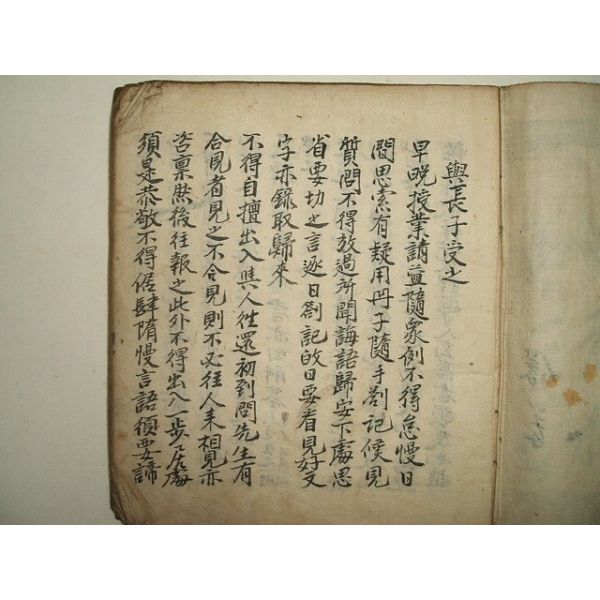 與長子受之
早晩授業請益隨衆例不得怠慢日
間思索有疑用册子隨手劄記候見
質問不得放過所聞誨語歸安下處思
省要切之言逐日劄記的日要看見好文
字亦錄取歸來
不得自擅出入與人往還初到問先生有
合見者見之不合見則不必往人来相見亦
咨稟然後往報之此外不得出入一步居處
須是恭敬不得倨肆隋慢言語須要諦